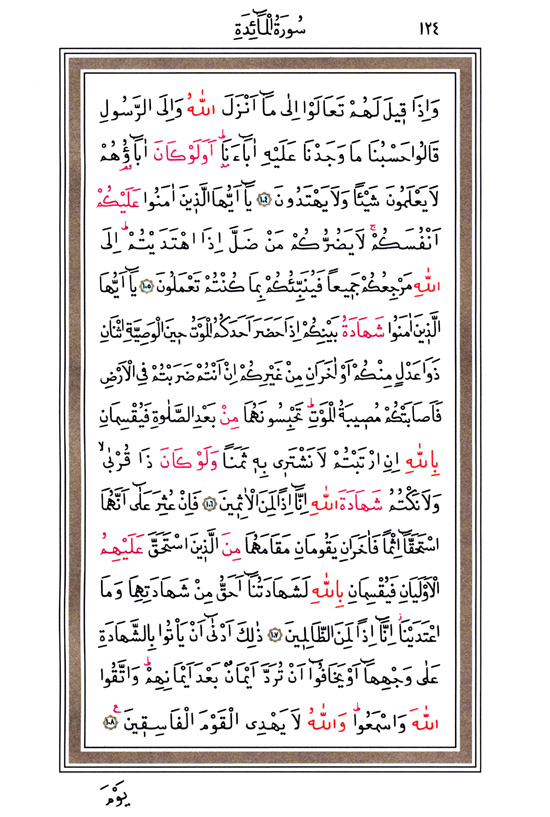 سُورَةُ الْمَٓائِدَةِ ١٢٤
وَاِذَا قٖيلَ لَهُمْ تَعَالَوْا اِلٰى مَٓا اَنْزَلَ اللّٰهُ وَاِلَى الرَّسُولِ
قَالُوا حَسْبُنَا مَا وَجَدْنَا عَلَيْهِ اٰبَٓاءَنَاۜ اَوَلَوْ كَانَ اٰبَٓاؤُ۬هُمْ
لَا يَعْلَمُونَ شَيْـًٔا وَلَا يَهْتَدُونَ ﴿١٠٤﴾ يَٓا اَيُّهَا الَّذٖينَ اٰمَنُوا عَلَيْكُمْ
اَنْفُسَكُمْۚ لَا يَضُرُّكُمْ مَنْ ضَلَّ اِذَا اهْتَدَيْتُمْۜ اِلَى
اللّٰهِ مَرْجِعُكُمْ جَمٖيعًا فَيُنَبِّئُكُمْ بِمَا كُنْتُمْ تَعْمَلُونَ ﴿١٠٥﴾ يَٓا اَيُّهَا
الَّذٖينَ اٰمَنُوا شَهَادَةُ بَيْنِكُمْ اِذَا حَضَرَ اَحَدَكُمُ الْمَوْتُ حٖينَ الْوَصِيَّةِ اثْنَانِ
ذَوَا عَدْلٍ مِنْكُمْ اَوْ اٰخَرَانِ مِنْ غَيْرِكُمْ اِنْ اَنْتُمْ ضَرَبْتُمْ فِي الْاَرْضِ
فَاَصَابَتْكُمْ مُصٖيبَةُ الْمَوْتِۜ تَحْبِسُونَهُمَا مِنْ بَعْدِ الصَّلٰوةِ فَيُقْسِمَانِ
بِاللّٰهِ اِنِ ارْتَبْتُمْ لَا نَشْتَرٖي بِهٖ ثَمَنًا وَلَوْ كَانَ ذَا قُرْبٰىۙ
وَلَا نَكْتُمُ شَهَادَةَ اللّٰهِ اِنَّٓا اِذًا لَمِنَ الْاٰثِمٖينَ ﴿١٠٦﴾ فَاِنْ عُثِرَ عَلٰٓى اَنَّهُمَا
اسْتَحَقَّٓا اِثْمًا فَاٰخَرَانِ يَقُومَانِ مَقَامَهُمَا مِنَ الَّذٖينَ اسْتَحَقَّ عَلَيْهِمُ
الْاَوْلَيَانِ فَيُقْسِمَانِ بِاللّٰهِ لَشَهَادَتُنَٓا اَحَقُّ مِنْ شَهَادَتِهِمَا وَمَا
اعْتَدَيْنَاۘ اِنَّٓا اِذًا لَمِنَ الظَّالِمٖينَ ﴿١٠٧﴾ ذٰلِكَ اَدْنٰٓى اَنْ يَأْتُوا بِالشَّهَادَةِ
عَلٰى وَجْهِهَٓا اَوْ يَخَافُٓوا اَنْ تُرَدَّ اَيْمَانٌ بَعْدَ اَيْمَانِهِمْۜ وَاتَّقُوا
اللّٰهَ وَاسْمَعُواۜ وَاللّٰهُ لَا يَهْدِي الْقَوْمَ الْفَاسِقٖينَ ﴿١٠٨﴾ ع
يَوْمَ